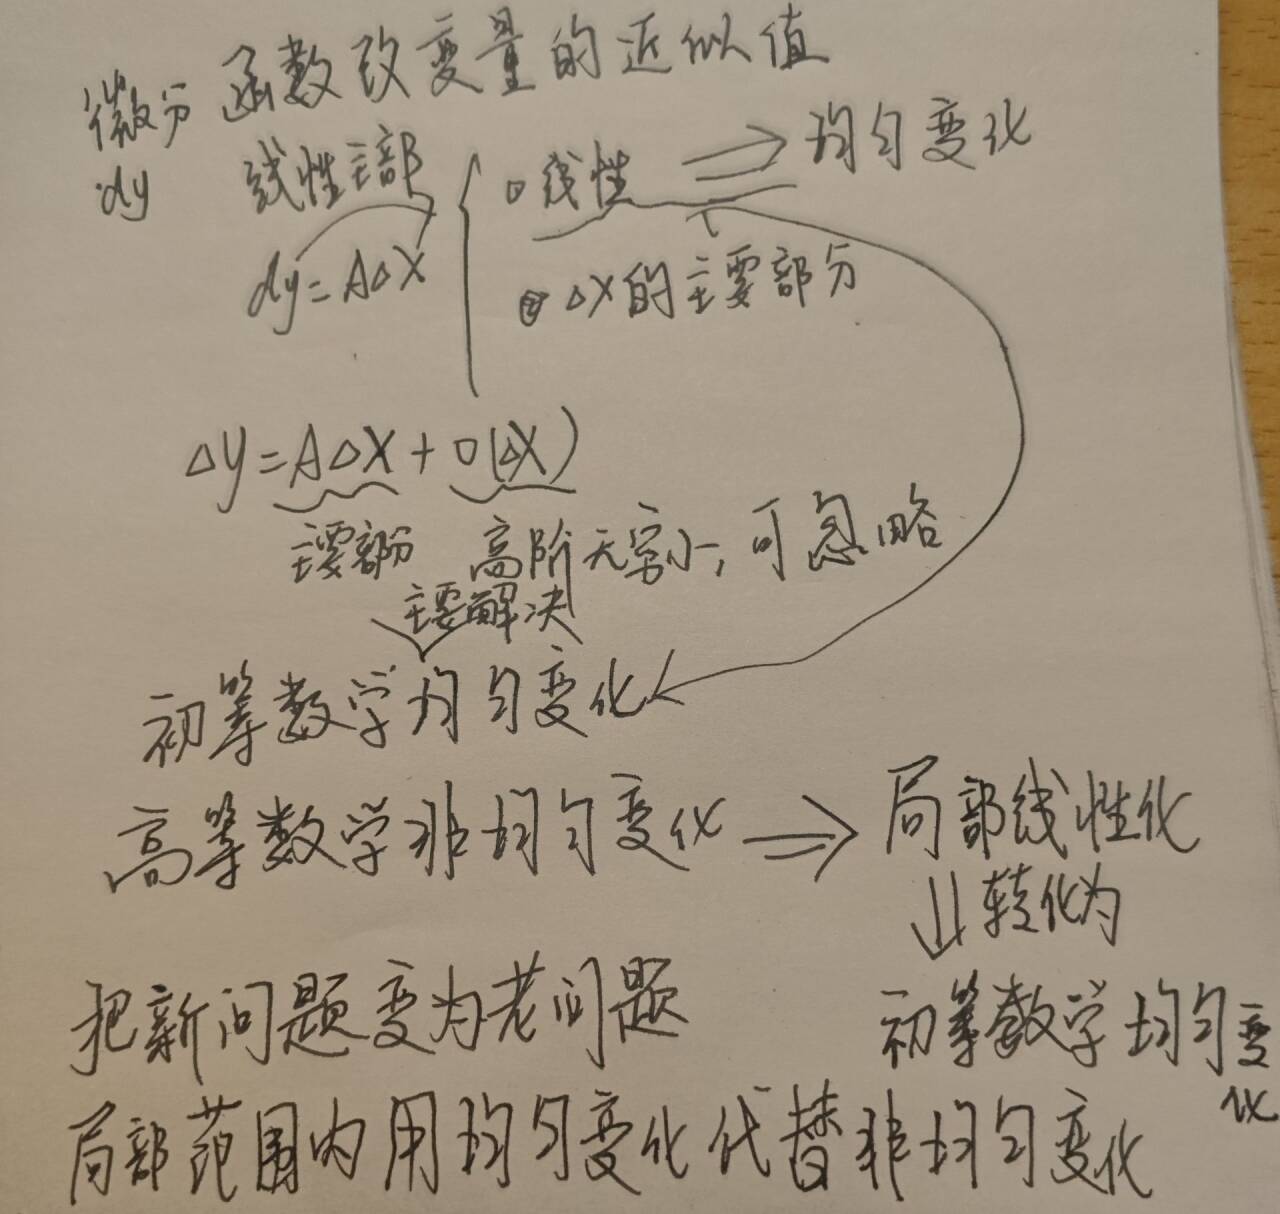 微分 函数改变量的近似值
dy 线性主部 ①线性 ⇒ 均匀变化
dy=AΔX ②ΔX的主要部分
ΔY=AΔX+o(ΔX)
主要部分 高阶无穷小,可忽略
主要解决
初等数学均匀变化
高等数学非均匀变化 ⇒ 局部线性化
⇓转化为
把新问题变为老问题 初等数学均匀变
化
局部范围内用均匀变化代替非均匀变化